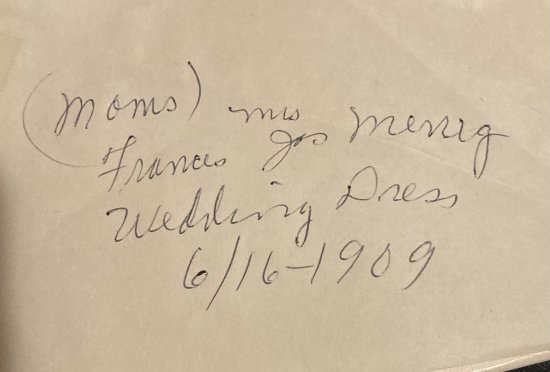 (Moms) Mrs Jos Menrig
Frances
Wedding Dress
6/16-1909